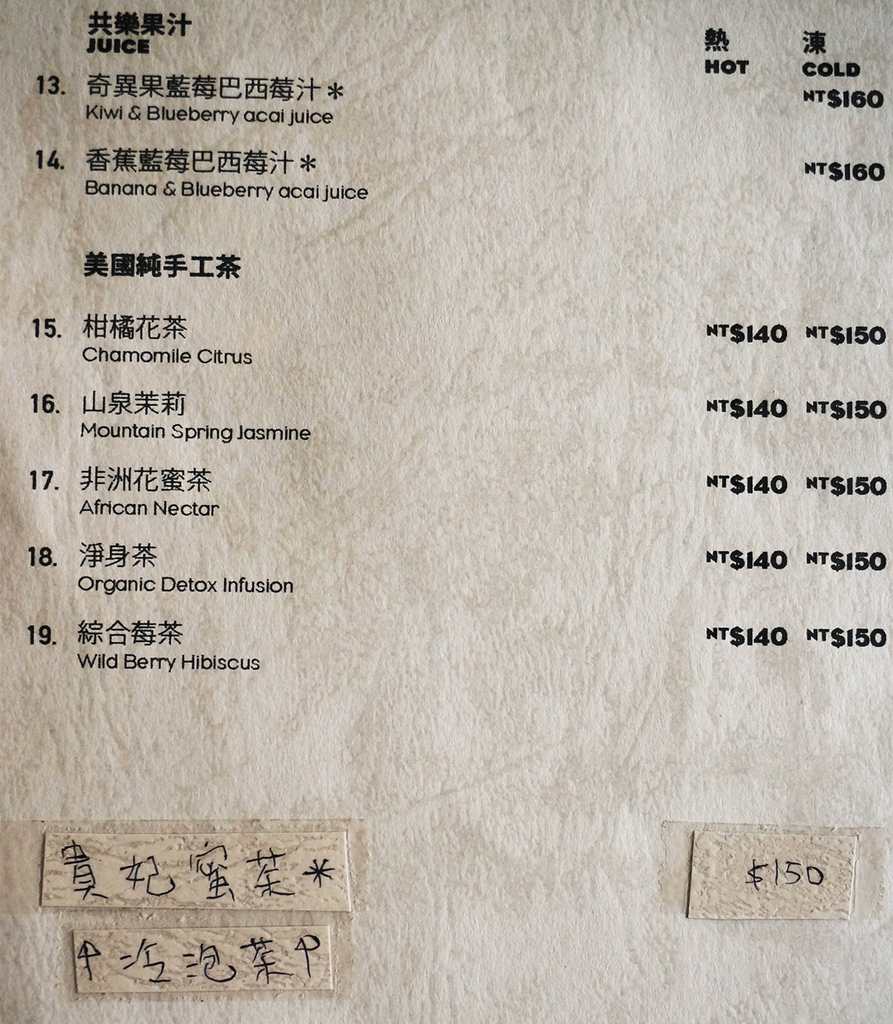 共樂果汁
JUICE
熱 凍
HOT COLD
13. 奇異果藍莓巴西莓汁＊ NT$160
Kiwi & Blueberry acai juice
14. 香蕉藍莓巴西莓汁＊ NT$160
Banana & Blueberry acai juice
美國純手工茶
15. 柑橘花茶 NT$140 NT$150
Chamomile Citrus
16. 山泉茉莉 NT$140 NT$150
Mountain Spring Jasmine
17. 非洲花蜜茶 NT$140 NT$150
African Nectar
18. 淨身茶 NT$140 NT$150
Organic Detox Infusion
19. 綜合莓茶 NT$140 NT$150
Wild Berry Hibiscus
貴妃蜜茶＊ $150
↑冷泡茶↑